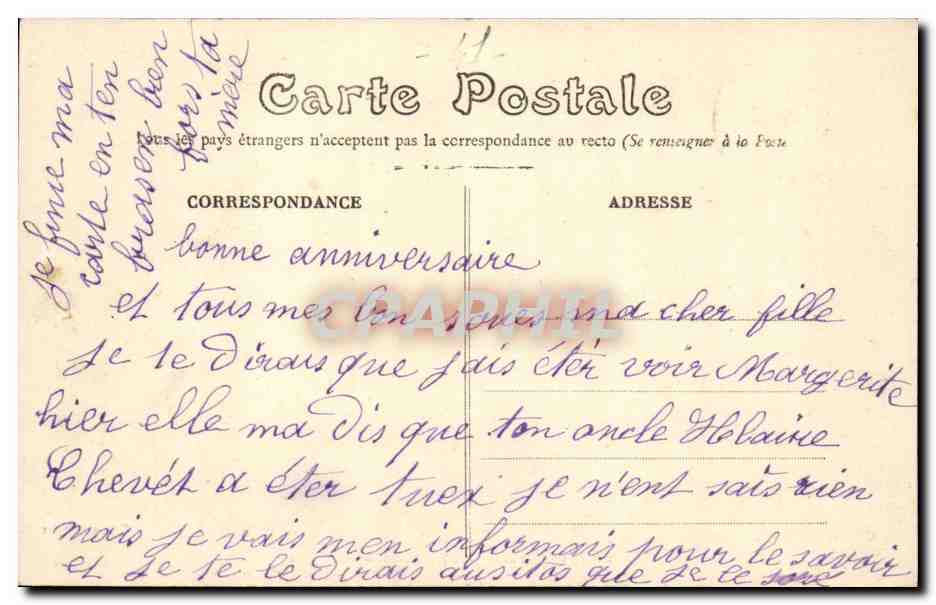 Carte Postale
Tous les pays étrangers n'acceptent pas la correspondance au recto (Se renseigner à la Poste
CORRESPONDANCE
ADRESSE
bonne anniversaire
et tous mes bon ma cher fille
je te dirais que jais étér voir Margerite
hier elle ma dis que ton oncle Hlaire
Chevét a éter tuex je n'ent sais rien
mais je vais men informais pour le savoir
et je te le dirais ausitos que je le
je finie ma
carte en ten
brasen bien
fors ta
mère
CPAPHIL